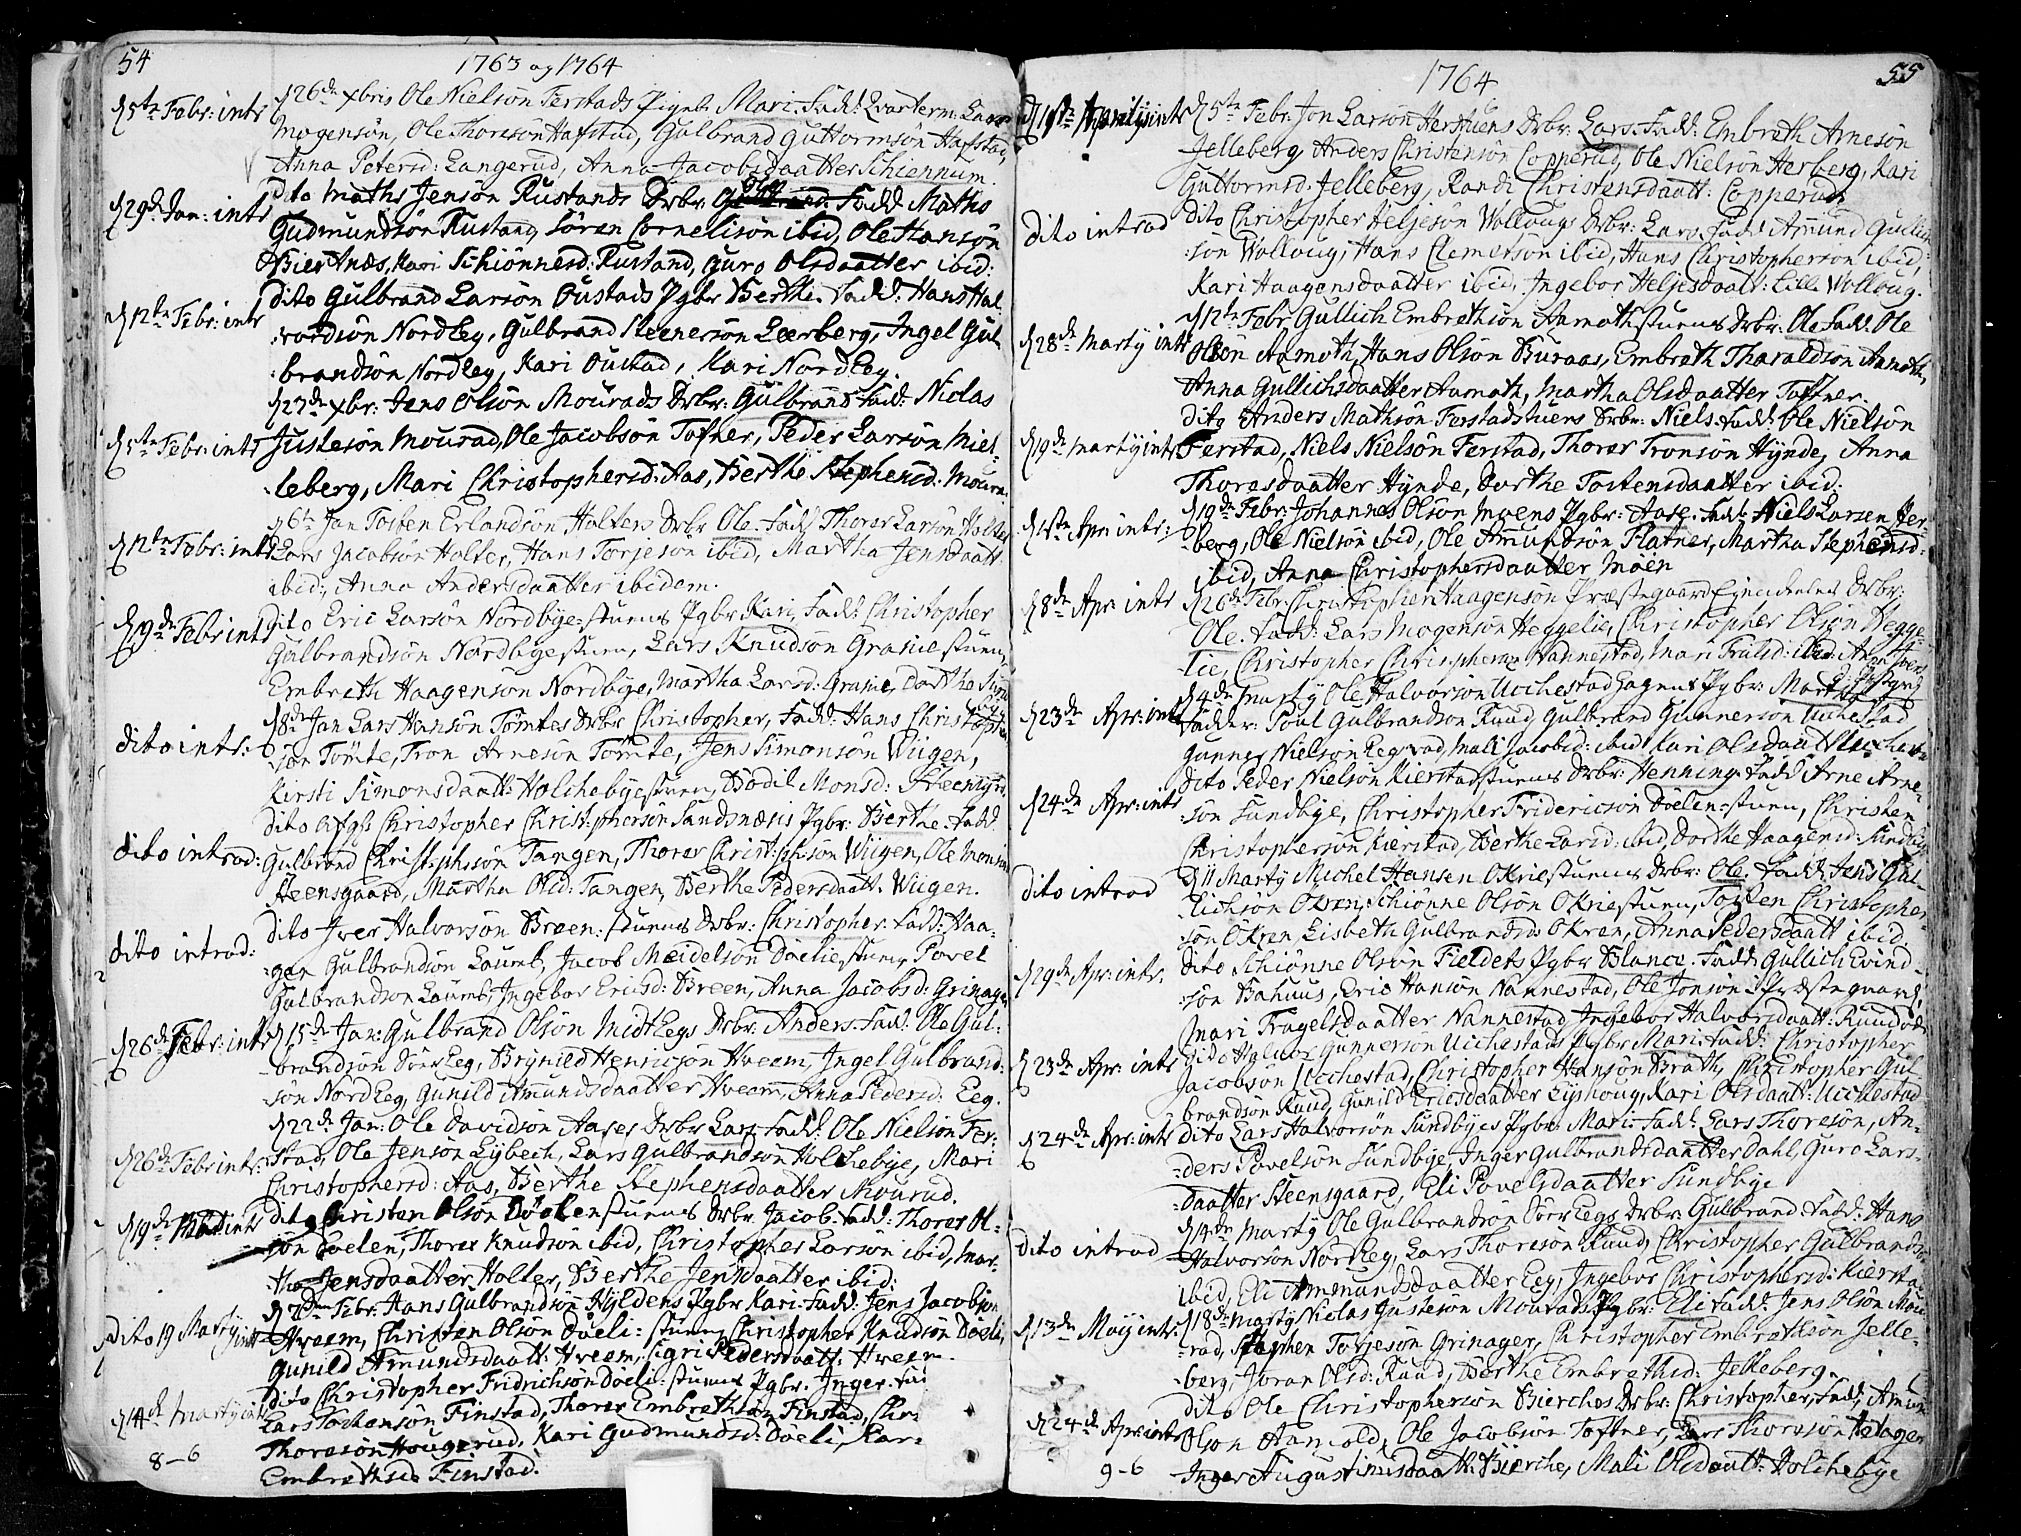 54
1763 og 1764
d 26de xbris Ole Nielsön Ferstads Pigeb. Mari. Fadd: Qvarterm: Lars
d 5te Febr: intr
Mogensön, Ole Thoresön Hafstad, Gulbrand Guttormsön Hafstad,
Anna Petersd: Langerud, Anna Jacobsdaatter Schiennum.
d 29de Jan: intr
dito Maths Jensön Rustands Drbr Fadd: Maths
Gudmundsön Rustand, Sören Cornelisön ibid, Ole Hansön
Biertnæs, Kari Schiönnesd: Rustand, Guro Olsdaatter ibid:
d 12te Febr: intr
dito Gulbrand Larsön Oustads Pgbr Berthe. Fadd: Hans Hal-
vordsön Nordbey, Gulbrand Steenersön Leerberg, Ingel Gul
brandsön Nordbey, Kari Oustad, Kari Nordbey.
d 27de xbr: Jens Olsön Mourads Drbr: Gulbrand Fadd: Niclas
d 5te Febr: intr
Justesön Mourad, Ole Jacobsön Tofner, Peder Larsön Miel-
leberg, Mari Christophersd: Aas, Berthe Stephensd: Moura
d 6te Jan Tosten Erlandsön Holters Drbr Ole. Fadd Thorer Larsön Holter
d 12te Febr: intr
Lars Jacobsön Holter, Hans Torjesön ibid, Martha Jensdaatt:
ibid:, Anna Andersdaatter ibidem.
d 19de Febr intr
dito Eric Larsön Nordbye-stuens Pgbr Kari, Fadd: Christopher
Gulbrandsön Nordbyestuen, Lars Knudsön Grasiestuen,
Embreth Haagensön Nordbye, Martha Larsd: Grasie, Dorthe
dito intr:
d 8de Jan Lars Hansön Tömtes Drbr Christopher, Fadd: Hans Christophers
sön Tömte, Tron Arnesön Tömte, Jens Simonsön Wiigen,
Kirsti Simonsdaatt: Holchebyestuen, Bodil Monsd:
dito Christopher Christophersön Sandsnæsis Pgbr: Berthe. Fadd
dito introd:
Gulbrand Christophsön Tangen, Thorer Christophsön Wiigen, Ole Monsön
Steensgaard, Martha Olsd: Tangen, Berthe Pedersdaatt. Wiigen.
dito introd:
dito Iver Halvorsön Breen: stuens Drbr: Christopher. Fadd: Haa-
gen Gulbrandsön Laumb, Jacob Meidelsön Döeliestuen, Povel
Gulbrandsön Laumb, Ingebor Ericsd: Breen, Anna Jacobsd: Grinager
d 26de Febr: intr
d 15de Jan: Gulbrand Olsön MidtEegs Drbr: Anders: Fadd: Ole Gul-
brandsön SörEeg, Brynild Henricsön Hveem, Ingel Gulbrand-
sön NordEeg, Gunild Amundsdaatter Hveem, Anna Pedersd: Eeg.
d 22de Jan: Ole Davidsön Aases Drbr Lars. Fadd: Ole Nielsön Fer-
d 26de Febr intr:
stad, Ole Jensön Lybech, Lars Gulbrandsön Holchebye, Mari
Christophersd: Aas, Berthe Stephensdaatter Mourud.
d 19de intr
dito Christen Olsön Döelenstuens Drbr Jacob. Fadd: Thorer Ol-
sön Döelen, Thorer Knudsön ibid, Christopher Larsön ibid, Mar-
tha Jensdaatter Holter, Berthe Jensdaatter ibid:
Febr: Hans Gulbrandsön Hyldens Pgbr Kari. Fadd: Jens Jacobsön
dito 19 Marty intr
Hveem, Christen Olsön Döeli-stuen, Christopher Knudsön Döeli,
Gunild Amundsdaatt: Hveem, Sigri Pedersdaatt: Hveem.
dito Christopher Fridrichsön Döeli-stuens Pgbr. Inger. Fad
d 14de Marty intr
Lars Tostensön Finstad, Thorer Embrethsön Finstad, Chr.
Thoresön Hougerud, Kari Gudmundsd: Döeli, Kar-
8-6
Embrethsd Finstad.
1764
55
d 1ste Aprilis intr
d 5te Febr. Jon Larsön Herstuens Drbr: Lars. Fadd: Embreth Arnesön
Jelleberg, Anders Christensön Copperud, Ole Nielsön Herberg, Kari
Guttormsd: Jelleberg, Randi Christensdaatt: Copperud.
dito introd
dito Christopher Heljesön Wollougs Drbr: Lars. Fadd Amund Gullic-
sön Wolloug, Hans Clemetsön ibid, Hans Christophersön ibid,
Kari Haagensdaatter ibid, Ingebor Heljesdaatt: Lille Wolloug.
d 12te Febr Gullich Embrethsön Aamothstuens Drbr: Ole Fadd: Ole
d 28de Marty intr
Olsön Aamoth, Hans Olsön Buraas, Embreth Tharaldsön Aamoth,
Anna Gullichsdaatter Aamoth, Martha Olsdaatter Toftner.
dito Anders Mathsön Ferstadstuens Drbr: Niels. Fadd: Ole Nielsön
d 19de Marty intr
Ferstad, Niels Nielsön Ferstad, Thorer Tronsön Hynde, Anna
Thoresdaatter Hynde, Dorthe Tostensdaatter ibid:
d 1ste Apr intr:
d 19de Febr: Johannes Olsön Moens Pgbr: Aase. Fadd: Niels Larsen Her-
berg, Ole Nielsön ibid, Ole Amundsön Flatner, Martha Stephensd:
ibid, Anna Christophersdaatter Moen
d 8de Apr: intr
d 26de Febr: Christopher Haagensön Præstegaard Drbr:
Ole. Fadd: Lars Mogensön Heggelie, Christopher Olsön Hegge-
lie, Christopher Christophersen Nannestad, Mari Trulsd: ibid: Anne
d 23de Apr: intr
d 4de Marty Ole Halvorsön Ucchestad Pgbr: Martha
Fadder: Poul Gulbrandsön Ruud, Gulbrand Gunnersön Ucchestad
Gunner Nielsön Eegstad, Mali Jacobsd: ibid Kari Olsdaatt Ucchestad
d 24de Apr: intr
dito Peder Nielsön Kierstadstuens Drbr: Henning. Fadd Arne Arne-
sön Sundbye, Christopher Fridericsön Döelen-stuen, Christen
Christophersön Kierstad, Berthe Larsd: ibid, Dorthe Haagensd: Sundbye
dito introd
d 11 Marty Michel Hansen Okriestuens Drbr: Ole. Fadd: Jens Gul-
lichsön Okren, Schiönne Olsön Okriestuen, Tosten Christopher-
sön Okren, Lisbeth Gulbrandsd Okren, Anna Pedersdaatt ibid.
d 29de Apr: intr.
dito Schiönne Olsön Fieldets Pgbr Blance. Fadd: Gullich Evind-
sön Bahuus, Eric Hansön Nannestad, Ole Jonsön i Præstegaard,
Mari Tragelsdaatter Nannestad, Ingebor Halvorsdaatt: Ruud
d 23de Apr: intr
dito Halvor Gunnersön Ucchestads Pgbr Mari. Fadd: Christopher
Jacobsön Ucchestad, Christopher Hansön Brath, Christopher Gul-
brandsön Ruud, Gunild Ericsdaatter Lyshoug, Kari Olsdaatt: Ucchestad
d 24de Apr: intr
dito Lars Halvorsön Sundbyes Pgbr Mari. Fadd: Lars Thoresön, An-
ders Povelsön Sundbye, Inger Gulbrandsdaatter Dahl, Guro Lars-
daatter Steensgaard, Eli Povelsdaatter Sundbye
dito introd
d 14de Marty Ole Gulbrandsön SörEegs Drbr: Gulbrand. Fadd: Hans
Halvorsön NordEeg, Lars Thoresön Ruud, Christopher Gulbrandsön
ibid, Eli Amundsdaatter Eeg, Ingebor Christophersd: Kierstad
d 13de Maij intr:
d 18de Marty Niclas Justesön Mourads Pgbr: Eli Fadd: Jens Olsön Mou-
rad, Stephen Torjesön Grinager, Christopher Embrethsön Jelle-
berg, Joran Olsd: Ruud, Berthe Embrethsd: Jelleberg.
dito Ole Christophersön Bierches Drbr: Christopher, Fadd: Amund
d 24de Apr: intr
Olsön, Ole Jacobsön Toftner, Lars Thoresön
9-6
Inger Augustinusdaatt: Bierche, Mali Olsdaatt: Holchebye